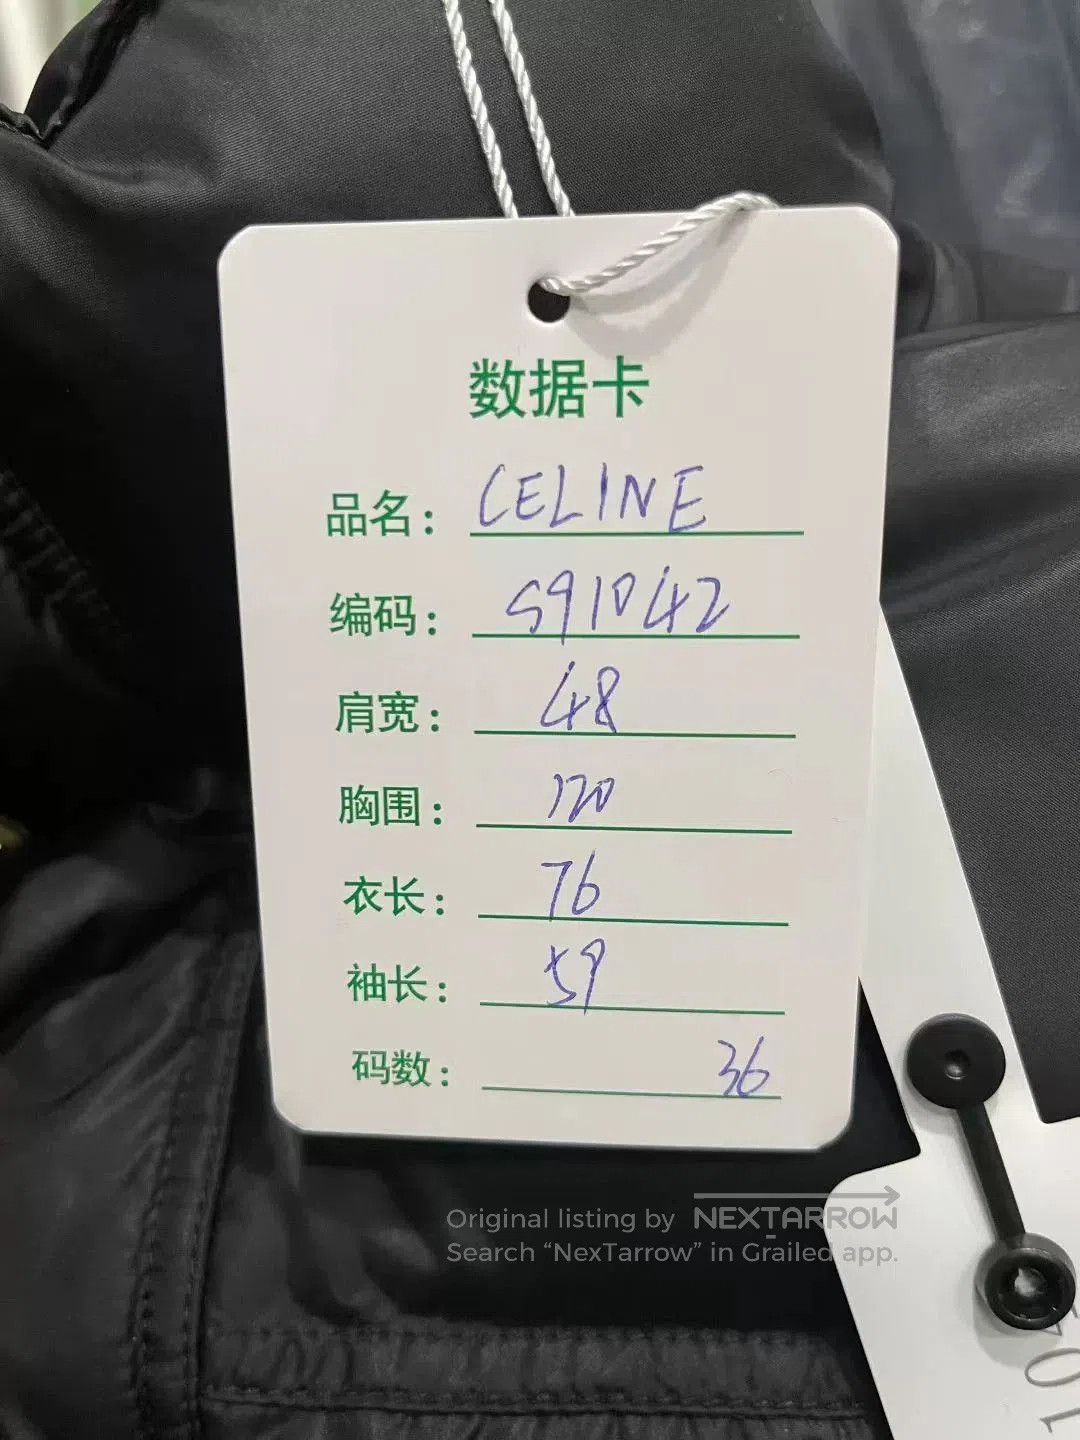 数据卡
品名: CELINE
编码: S91042
肩宽: 48
胸围: 120
衣长: 76
袖长: 59
码数: 36
Original listing by NEXTARROW
Search “NexTarrow” in Grailed app.